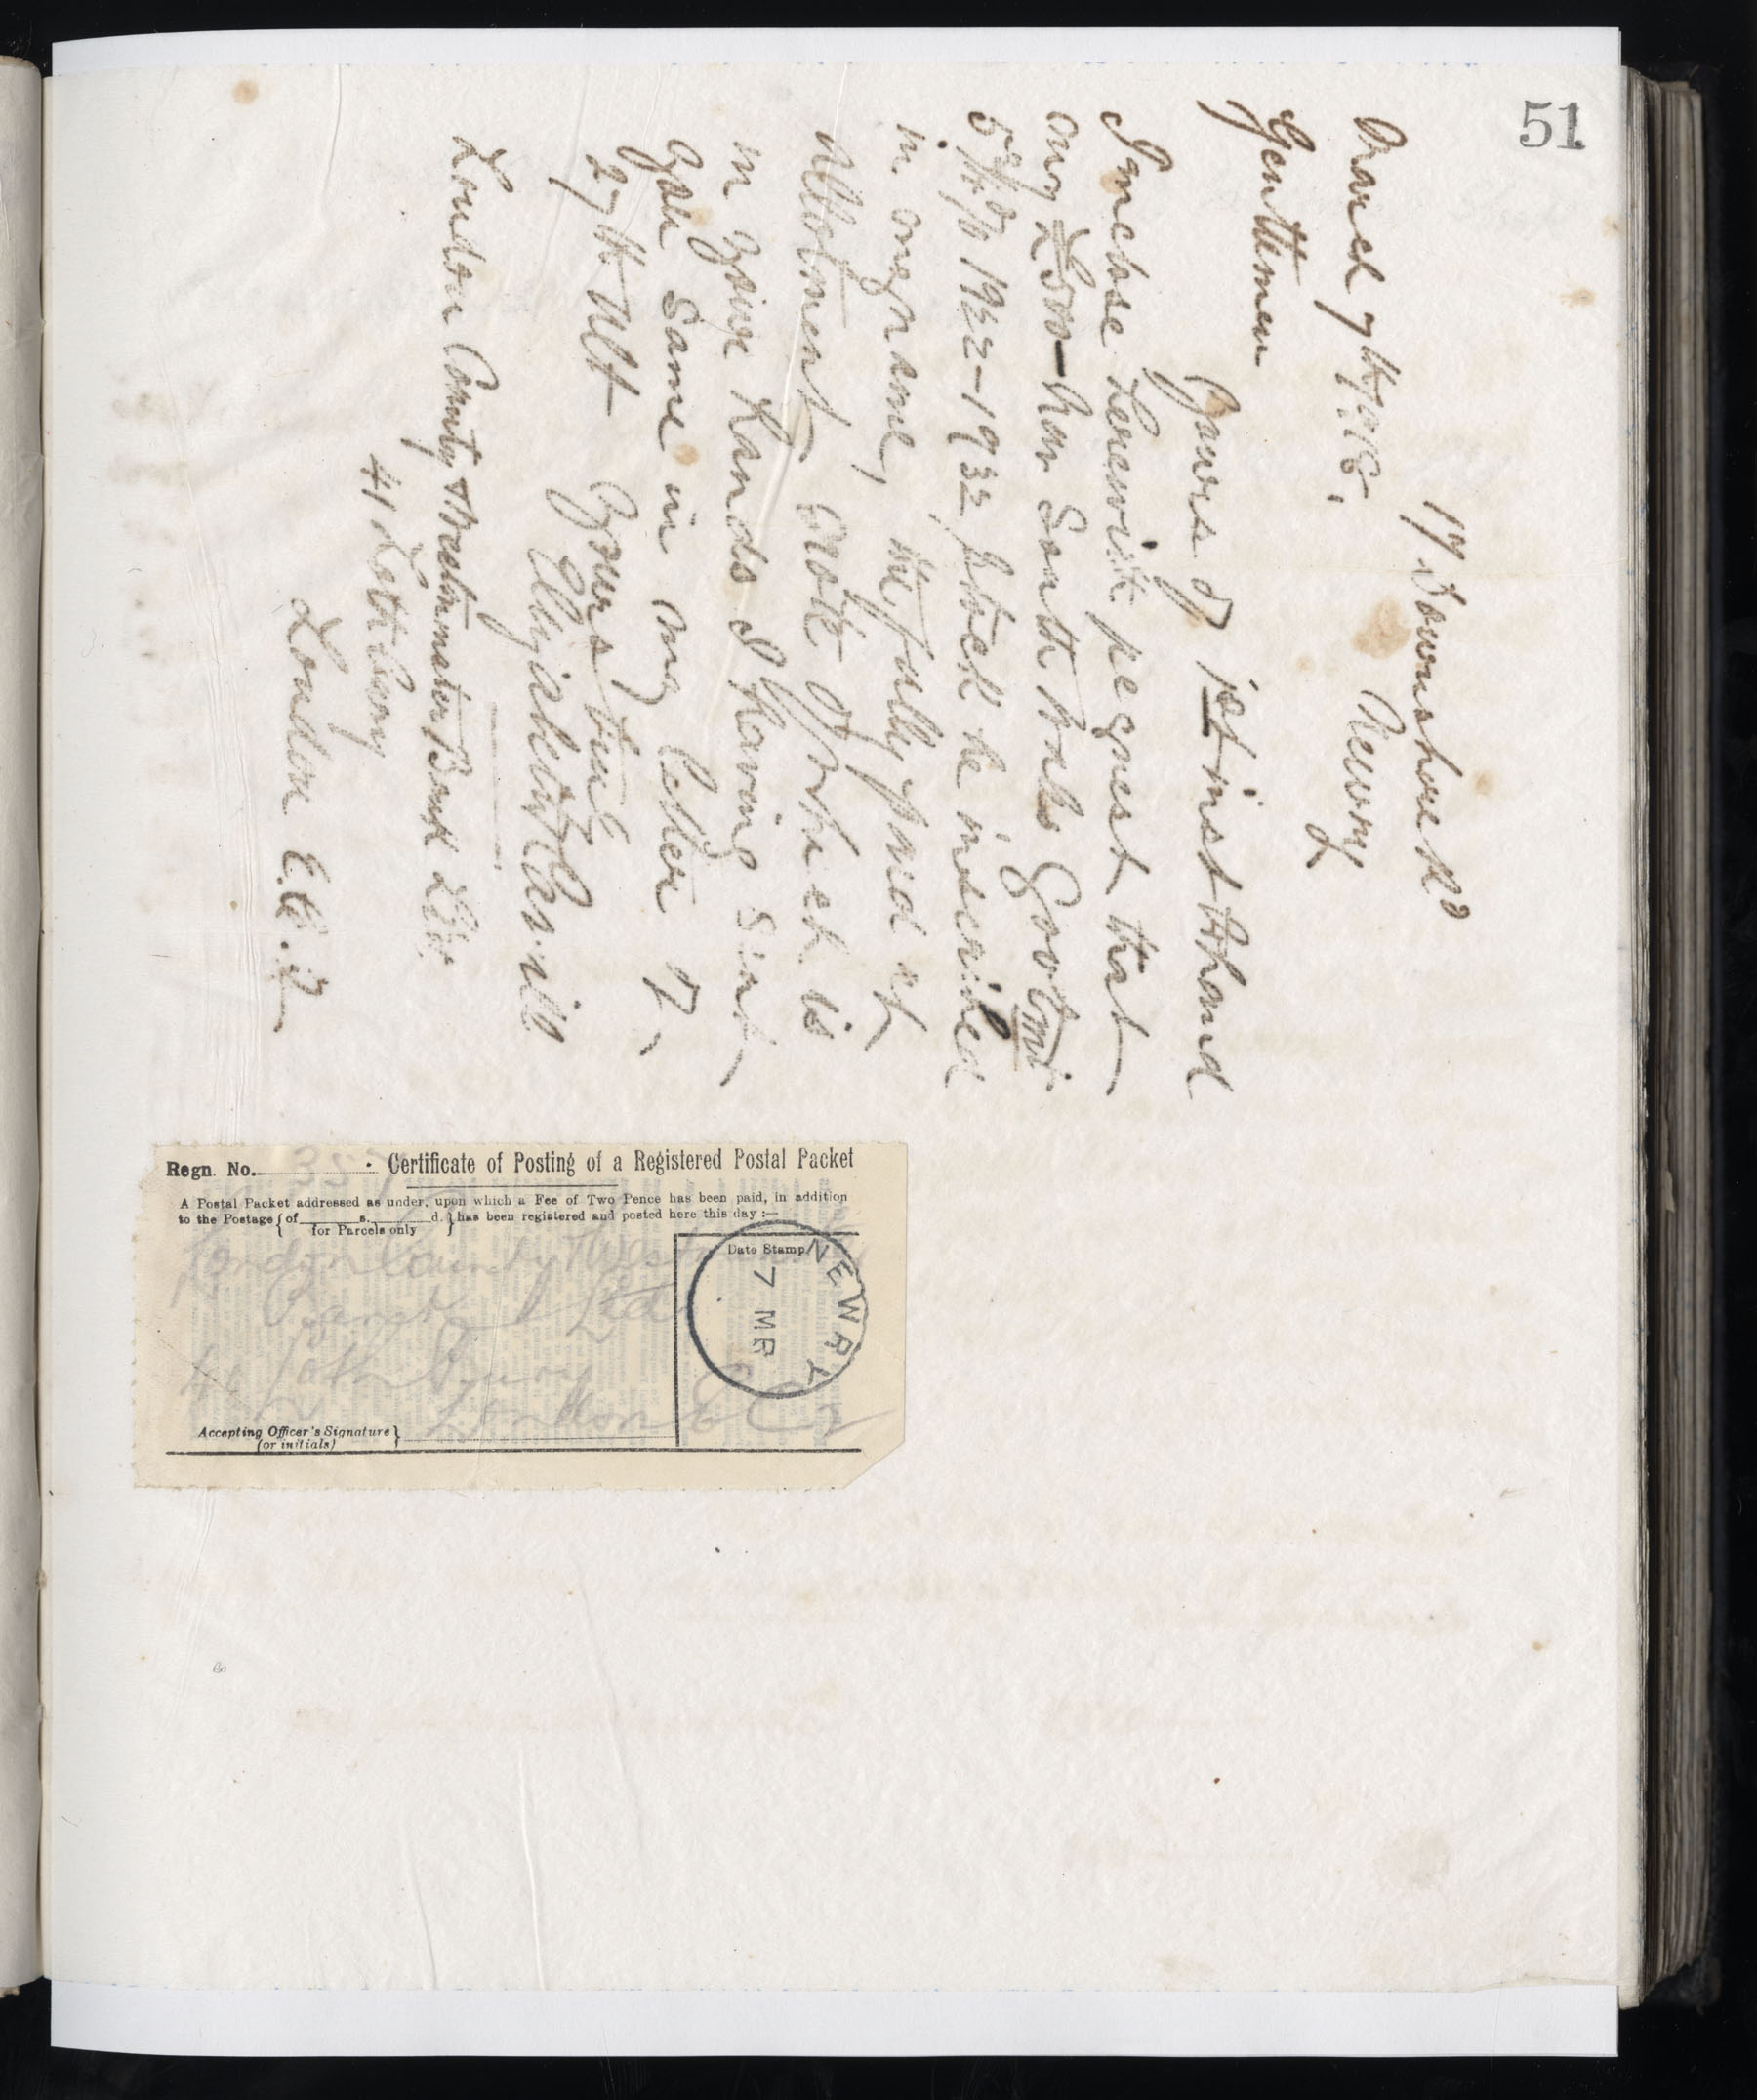 51
17 Downshire Rd
Newry
March 7th 1916.
Gentlemen
Yours of 1st inst to hand
I inclose herewith request that
my £500 New South Wales Govtmt
5¾% 1922-1932 Stock be inscribed
in my name, fully paid
Allotment note of which is
in your hands I having sent
you same in my letter of
27th Ult Yours truly
London County & Westminster Bank Ltd.
41 Lothbury
London E.C.2
Regn. No. Certificate of Posting of a Registered Postal Packet
A Postal Packet addressed as under, upon which a Fee of Two Pence has been paid, in addition
to the Postage { of s. d. } has been registered and posted here this day :—
for Parcels only
Date Stamp
NEWRY
7 MR
London County & Westminster
Bank Ltd
41 Lothbury
London E C 2
Accepting Officer's Signature }
(or initials)